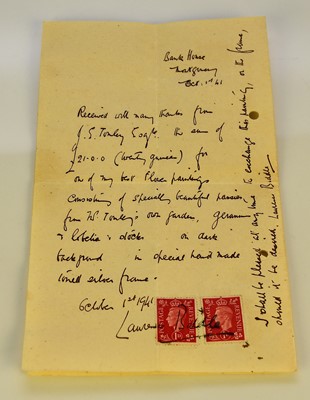 Bank House
Montgomery
Oct. 1st 41
Received with many thanks from
J. S. Tomley Esq. the sum of
21-0-0 (twenty guineas) for
one of my best flower paintings
consisting of specially beautiful
from Mr Tomley's own garden, geranium
& lobelia & stocks on dark
background in special hand made
silver frame.
October 1st 1941
I shall be pleased at any time to exchange this painting, or the frame,
should it be desired,
POSTAGE REVENUE
1D
POSTAGE REVENUE
1D